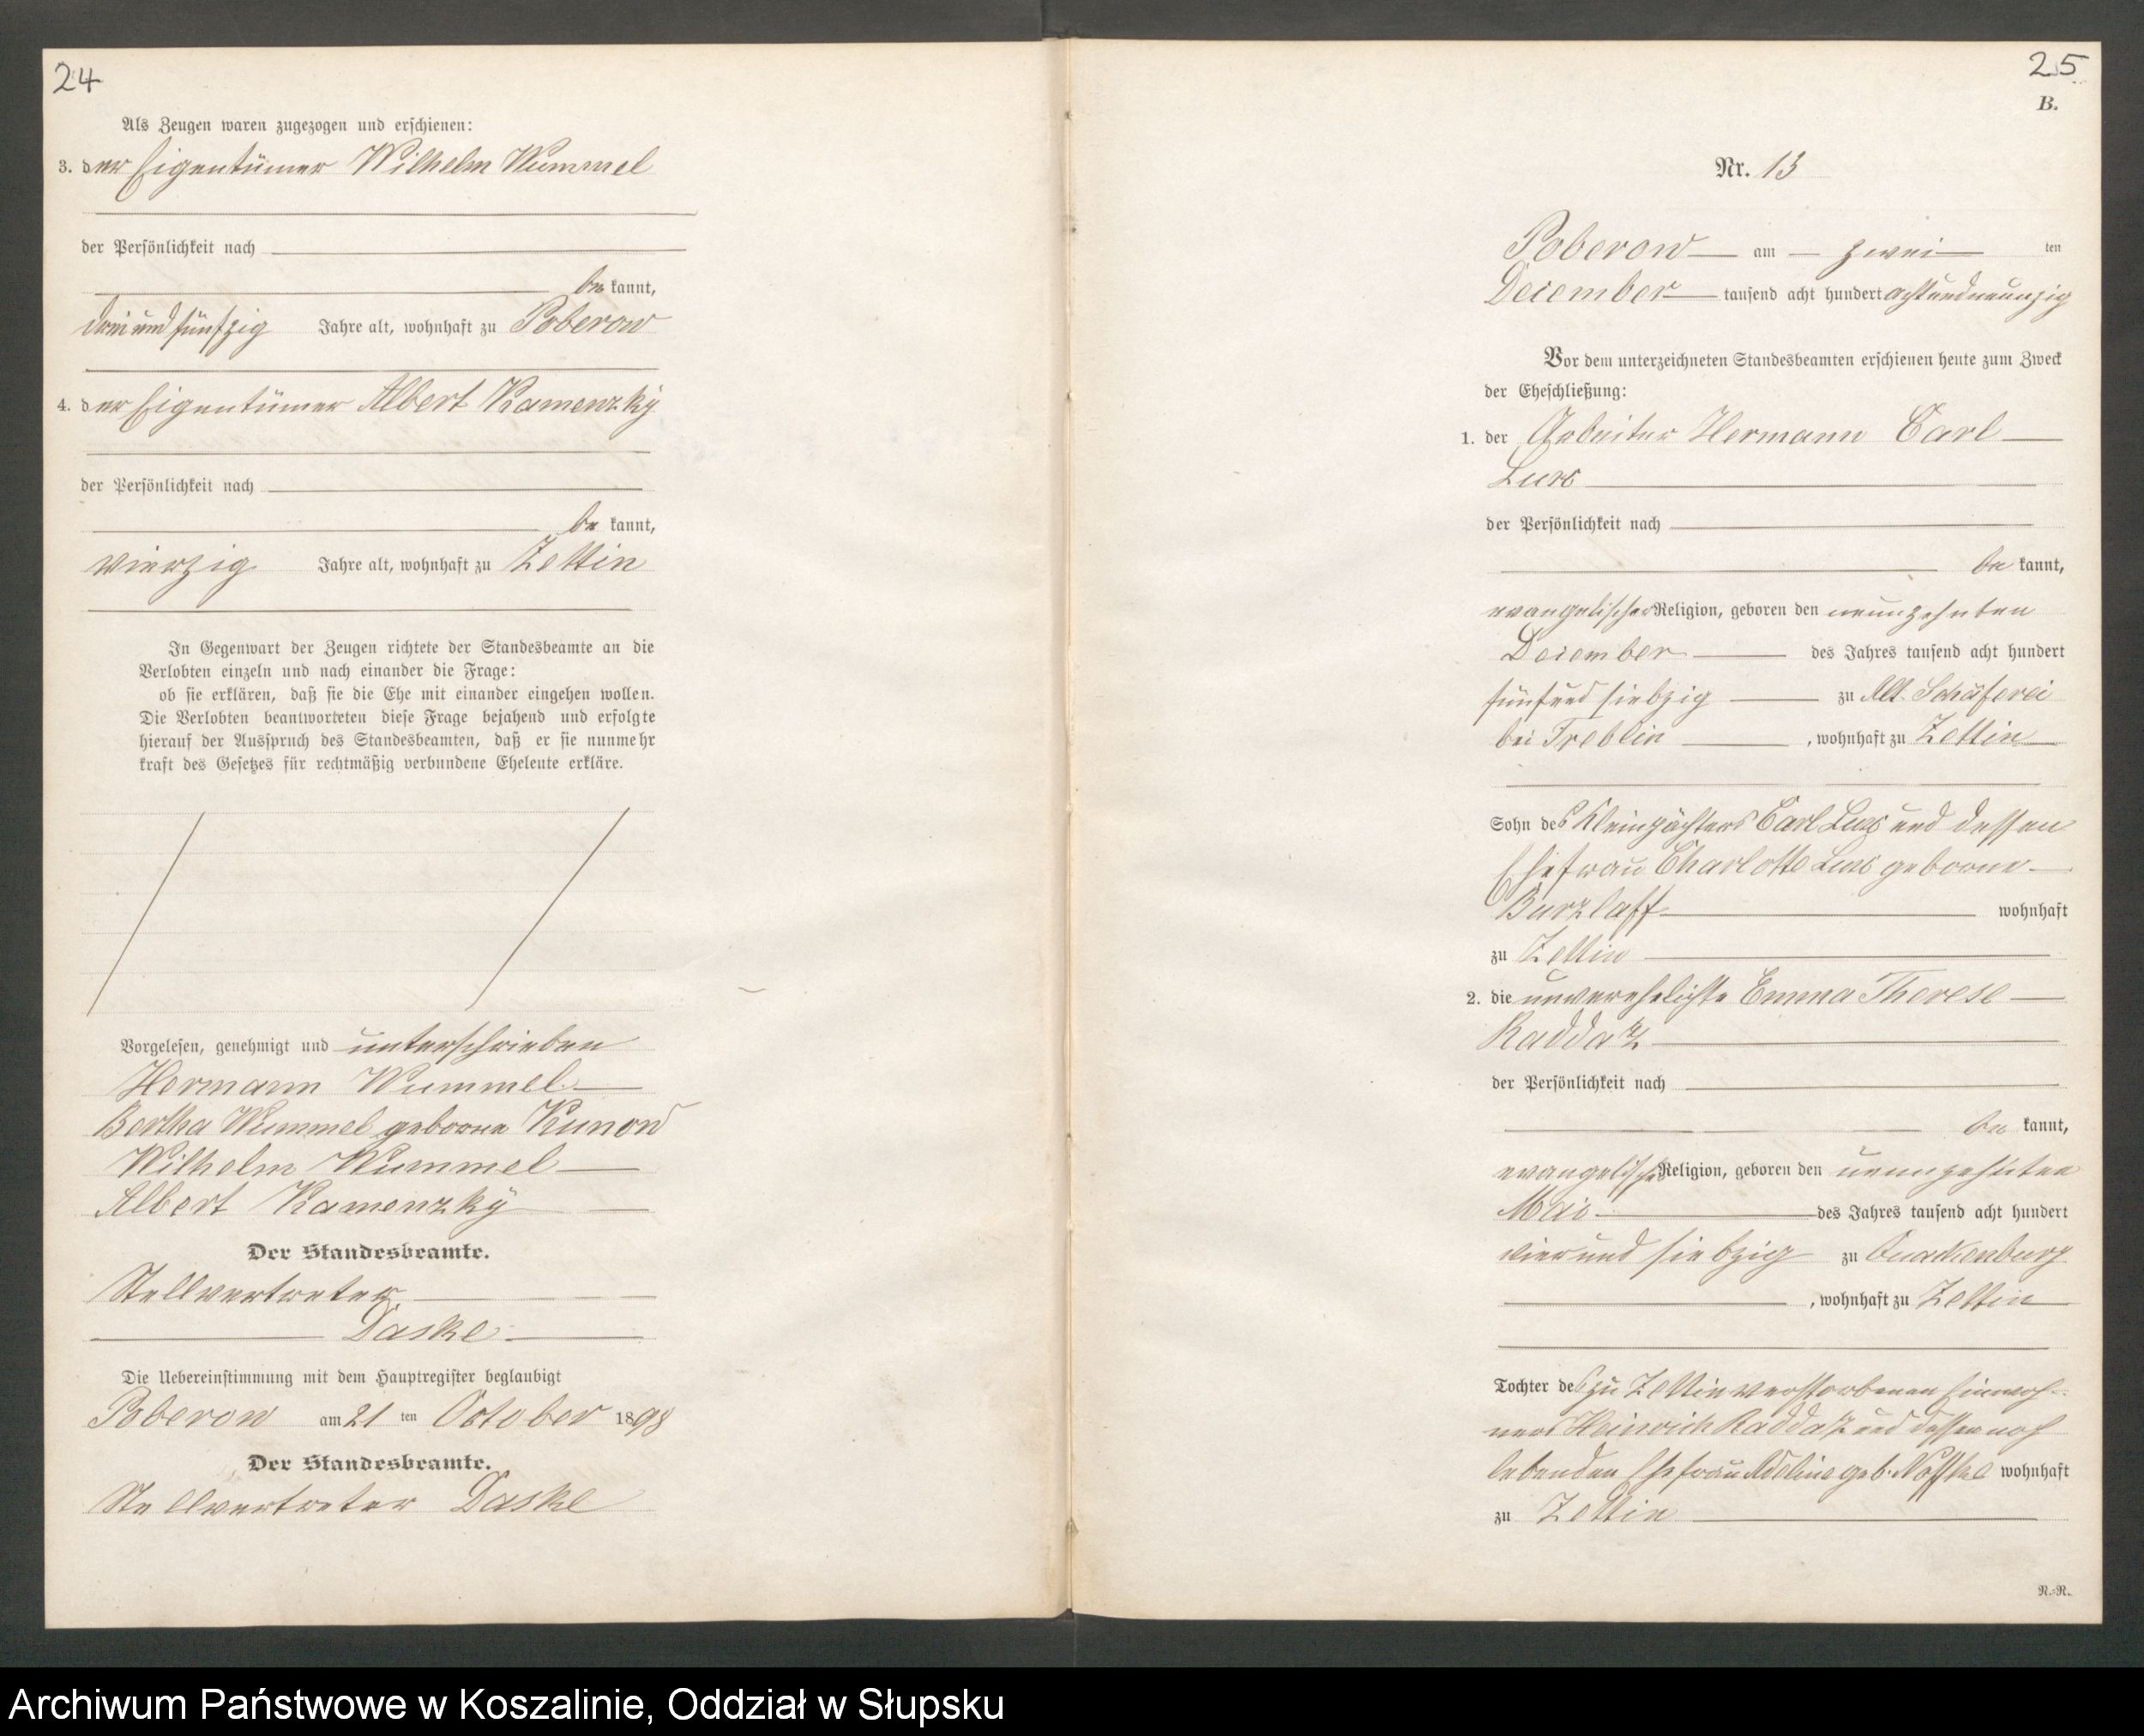 24
Als Zeugen waren zugezogen und erschienen:
3. der Eigentümer Wilhelm Wummel
der Persönlichkeit nach
be kannt,
drei und fünfzig Jahre alt, wohnhaft zu Poberow
4. der Eigentümer Albert Kamenzky
der Persönlichkeit nach
be kannt,
vierzig Jahre alt, wohnhaft zu Zettin
In Gegenwart der Zeugen richtete der Standesbeamte an die
Verlobten einzeln und nach einander die Frage:
ob sie erklären, daß sie die Ehe mit einander eingehen wollen.
Die Verlobten beantworteten diese Frage bejahend und erfolgte
hierauf der Ausspruch des Standesbeamten, daß er sie nunmehr
kraft des Gesetzes für rechtmäßig verbundene Eheleute erkläre.
Vorgelesen, genehmigt und unterschrieben
Hermann Wummel
Bertha Wummel geborne Kunow
Wilhelm Wummel
Albert Kamenzky
Der Standesbeamte.
Stellvertreter
Daske
Die Uebereinstimmung mit dem Hauptregister beglaubigt
Poberow am 21 ten October 1898
Der Standesbeamte.
Stellvertreter Daske
25
B.
Nr. 13
Poberow am zwei ten
December tausend acht hundert achtundneunzig
Vor dem unterzeichneten Standesbeamten erschienen heute zum Zweck
der Eheschließung:
1. der Arbeiter Hermann Carl
der Persönlichkeit nach
be kannt,
evangelischer Religion, geboren den neunzehnten
December des Jahres tausend acht hundert
fünfund siebzig zu Alt. Schäferei
bei Treblin, wohnhaft zu Zettin
Sohn des Kleinpächters Carl und dessen
Ehefrau Charlotte geborne
Burzlaff wohnhaft
zu Zettin
2. die unverehelichte Emma Therese
Raddatz
der Persönlichkeit nach
be kannt,
evangelischer Religion, geboren den neunzehnten
Mai des Jahres tausend acht hundert
vierund siebzig zu Quackenburg
, wohnhaft zu Zettin
Tochter des zu Zettin verstorbenen Einwoh-
ners Heinrich Raddatz und dessen noch
lebenden Ehefrau Adeline geb. Noffke wohnhaft
zu Zettin
R.-R.
Archiwum Państwowe w Koszalinie, Oddział w Słupsku